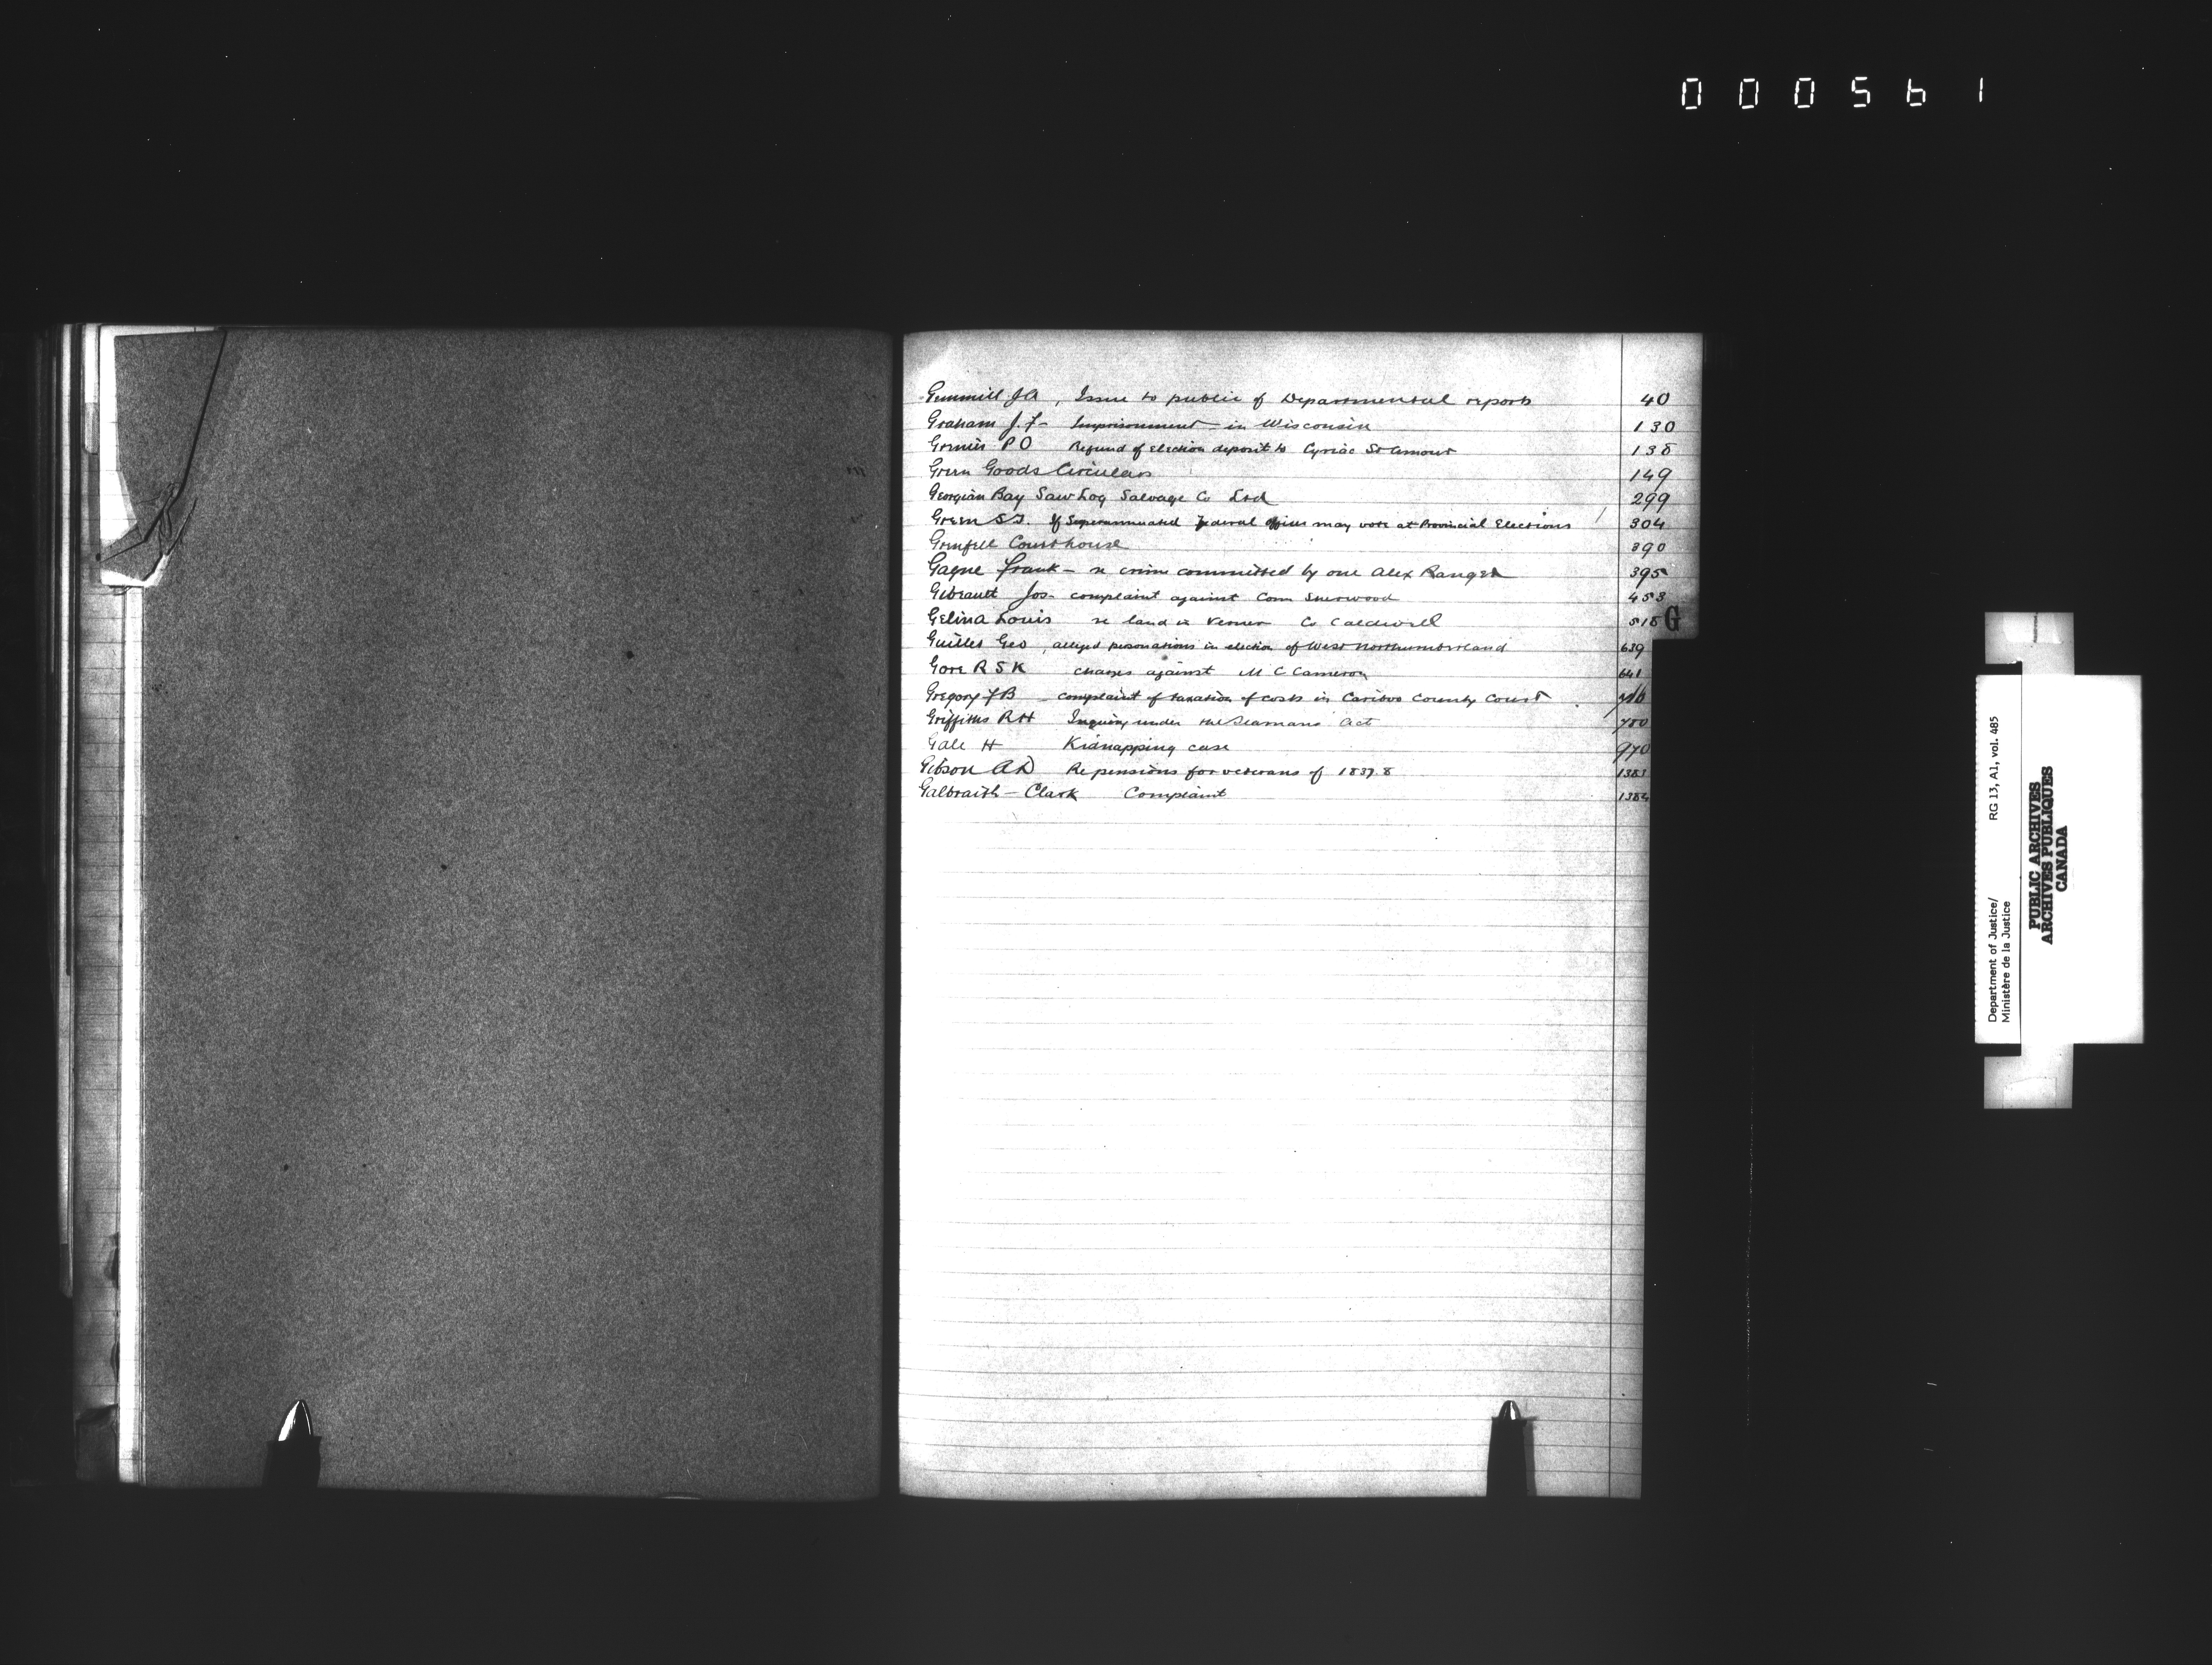 000561
Gemmill J A, Issue to public of Departmental reports 40
Graham J. F - Imprisonment - in Wisconsin 130
Grenier P O Refund of election deposit to Cyriac St Amour 138
Green Goods Circulars 149
Georgian Bay Saw Log Salvage Co Ltd 299
Green S J. If Superannuated Federal officer may vote at Provincial Elections 304
Grenfell Courthouse 390
Gagne Frank - re crime committed by one Alex Ranger 395
Gibeault Jos - complaint against Com Sherwood 453
Gelina Louis re land in Verner Co Caldwell 518
G
Guillet Geo, alleged personations in election of West Northumberland 639
Gore R S K charges against M C Cameron 641
Gregory F B - complaint of taxation of costs in Cariboo County Court
Griffiths R H Inquiry under the Seamans Act 780
Gale H Kidnapping case 970
Gibson A D Re pensions for veterans of 1837.8 1383
Galbraith - Clark Complaint 1384
Department of Justice/ RG 13, A1, vol. 485
Ministère de la Justice
PUBLIC ARCHIVES
ARCHIVES PUBLIQUES
CANADA